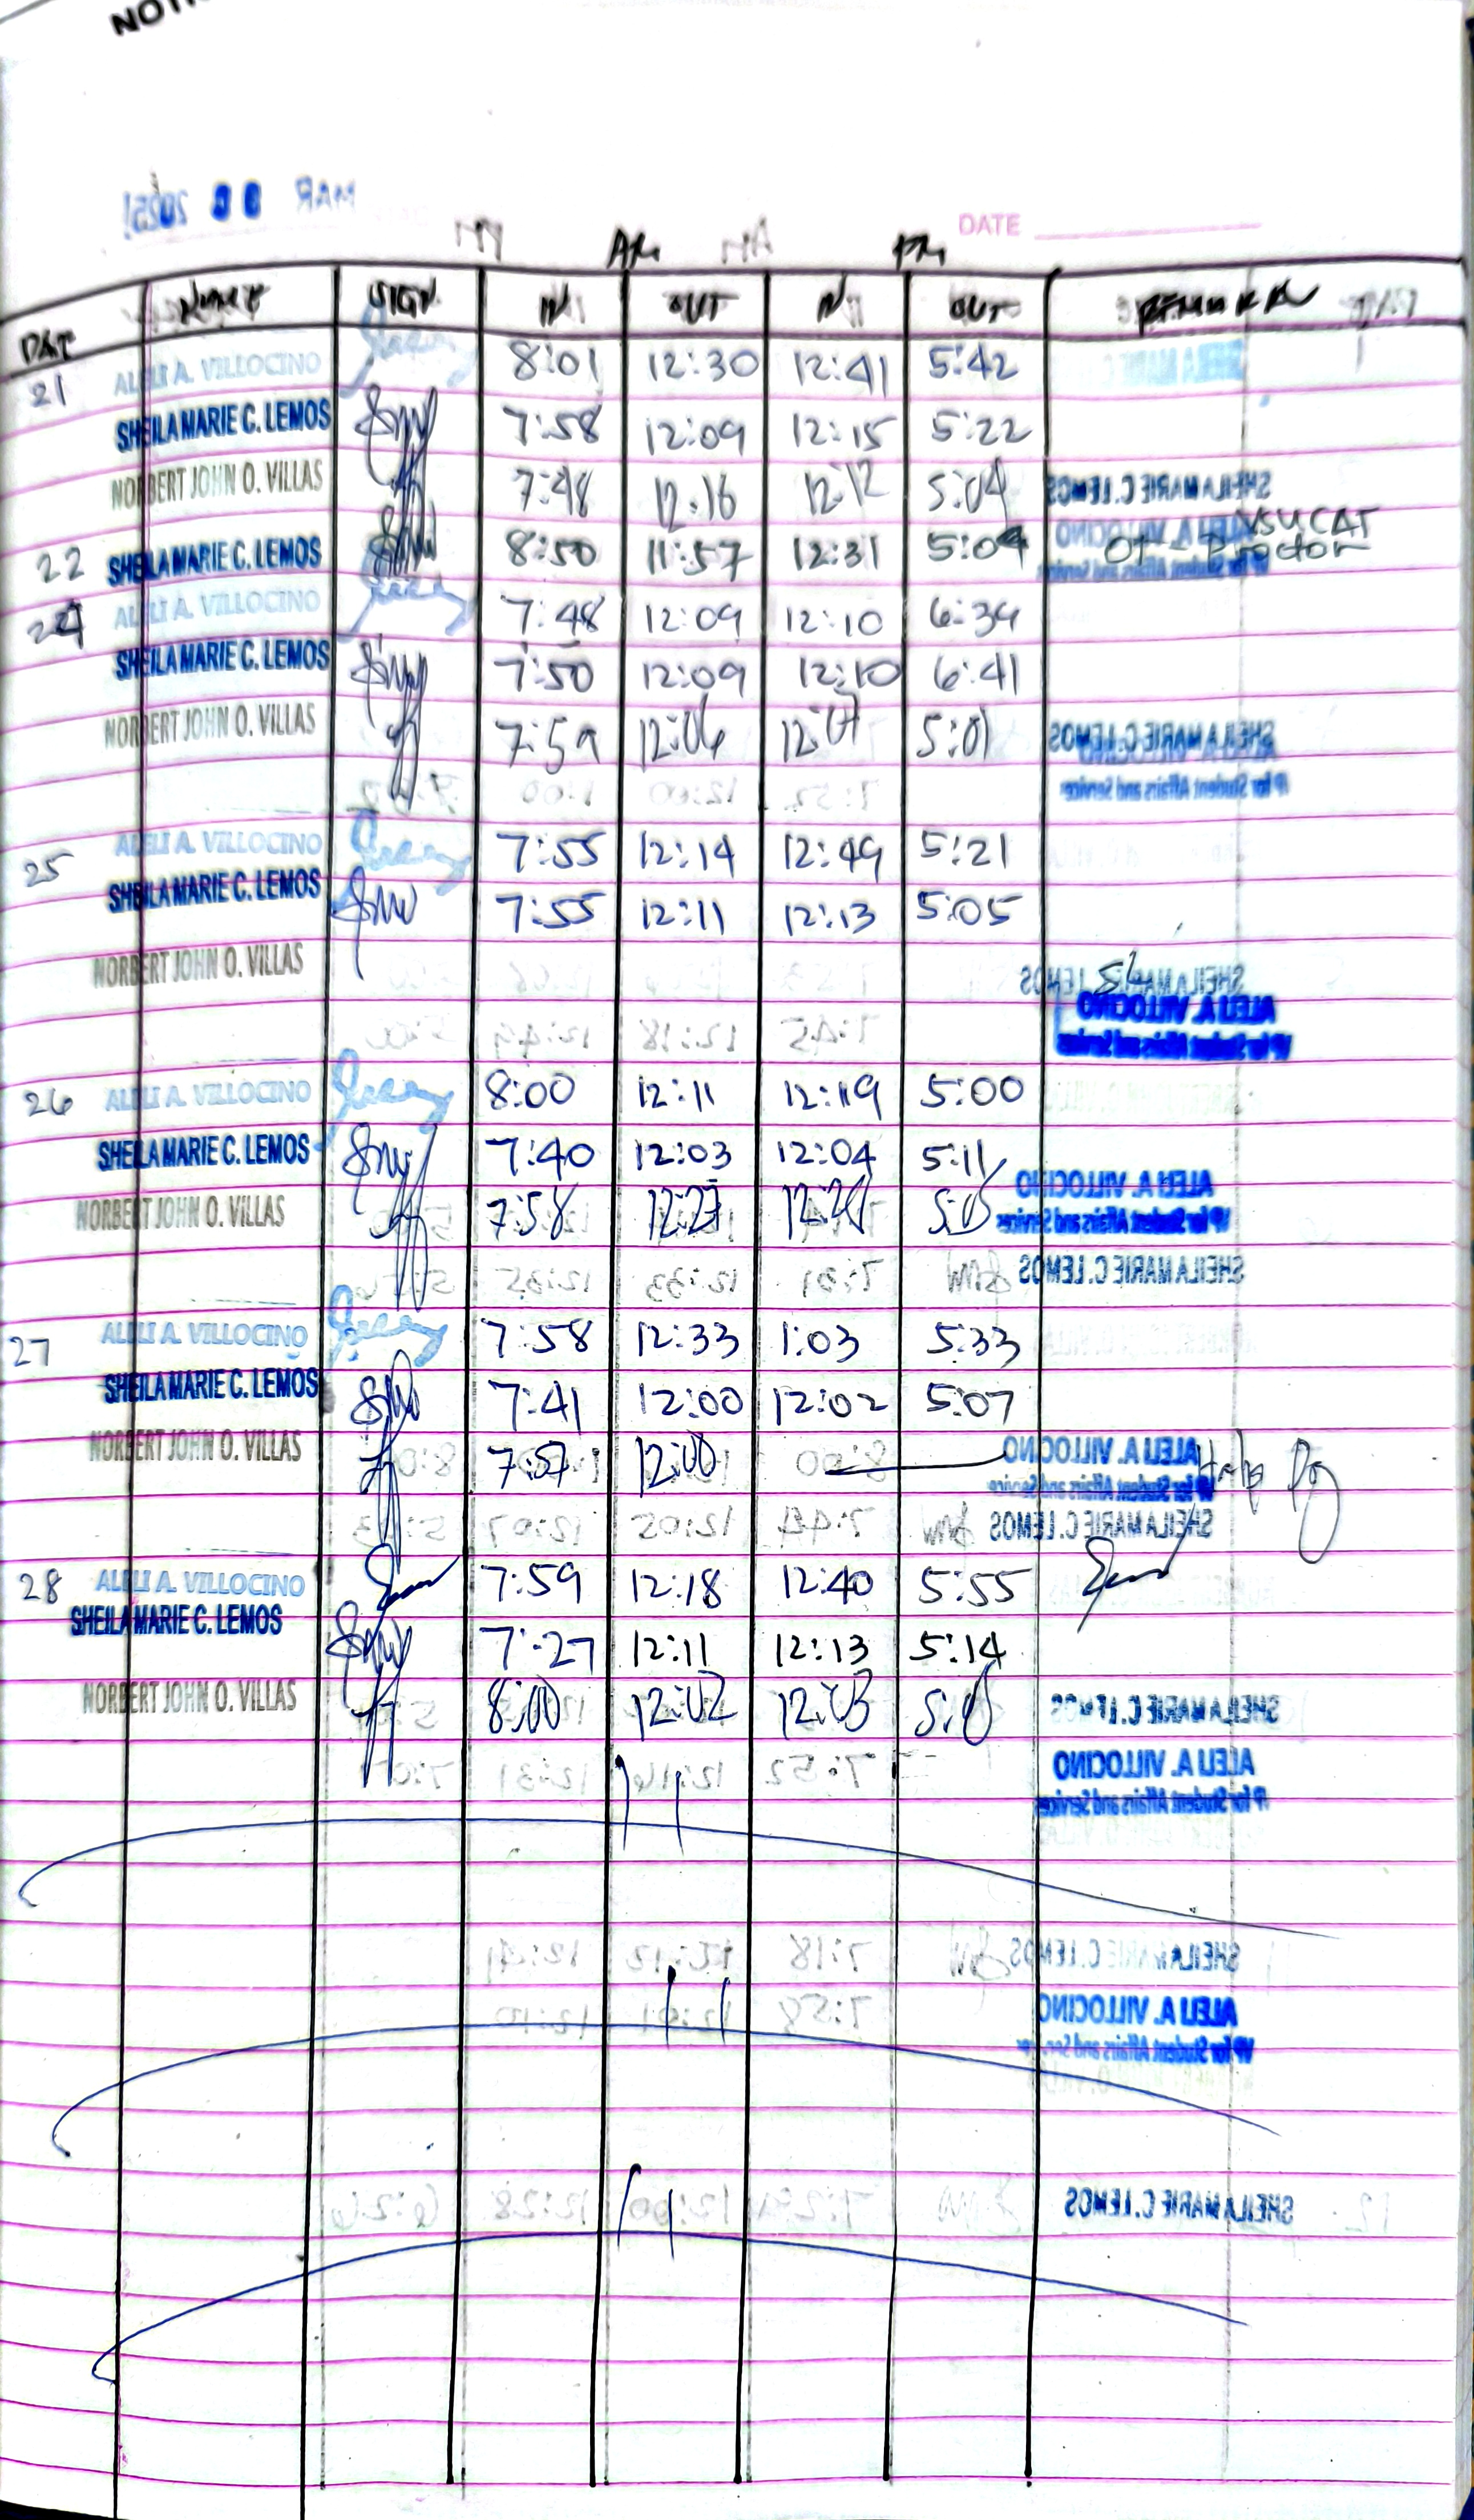 DATE
AM PM
DAY NAME SIGN IN OUT IN OUT REMARKS
21 ALELI A. VILLOCINO 8:01 12:30 12:41 5:42
SHEILA MARIE C. LEMOS 7:58 12:09 12:15 5:22
NORBERT JOHN O. VILLAS 7:48 12:16 12:12 5:04
22 SHEILA MARIE C. LEMOS 8:50 11:57 12:31 5:04 OT - Proctor VSUCAT
24 ALELI A. VILLOCINO 7:48 12:09 12:10 6:39
SHEILA MARIE C. LEMOS 7:50 12:09 12:10 6:41
NORBERT JOHN O. VILLAS 7:59 12:06 12:07 5:01
25 ALELI A. VILLOCINO 7:55 12:14 12:49 5:21
SHEILA MARIE C. LEMOS 7:55 12:11 12:13 5:05
NORBERT JOHN O. VILLAS SL
26 ALELI A. VILLOCINO 8:00 12:11 12:19 5:00
SHEILA MARIE C. LEMOS 7:40 12:03 12:04 5:11
NORBERT JOHN O. VILLAS 7:58
27 ALELI A. VILLOCINO 7:58 12:33 1:03 5:33
SHEILA MARIE C. LEMOS 7:41 12:00 12:02 5:07
NORBERT JOHN O. VILLAS 7:57 12:00
28 ALELI A. VILLOCINO 7:59 12:18 12:40 5:55
SHEILA MARIE C. LEMOS 7:27 12:11 12:13 5:14
NORBERT JOHN O. VILLAS 8:00 12:02 12:03